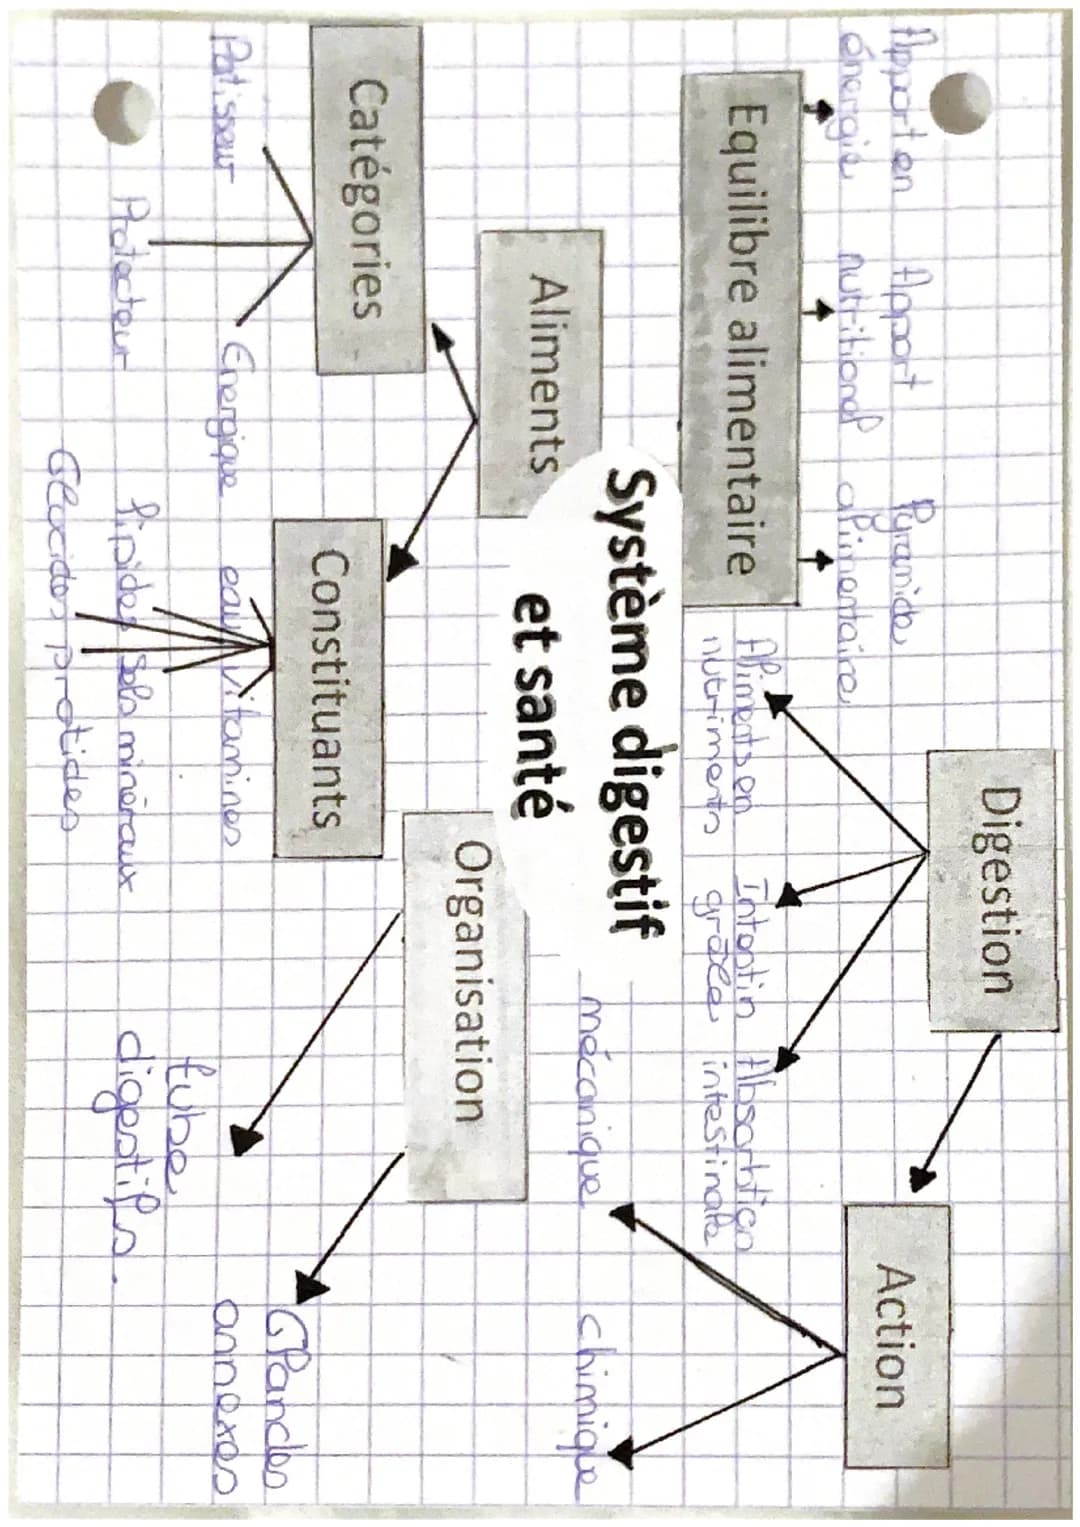 Apport en
énergie
Apport
nutritional
Pyramide
alimentaire
Equilibre alimentaire
Digestion
Aliments en
nutriments
Intestin
grâce
Absorbtion
intestinale
Action
mécanique
chimique
Système digestif
et santé
Aliments
Catégories
Batisseur
Protecteur
Energique
Constituants
eau
vitamines
lipides
sels minéraux
Glucides
protides
Organisation
tube
digestifs.
Glandes
annexes